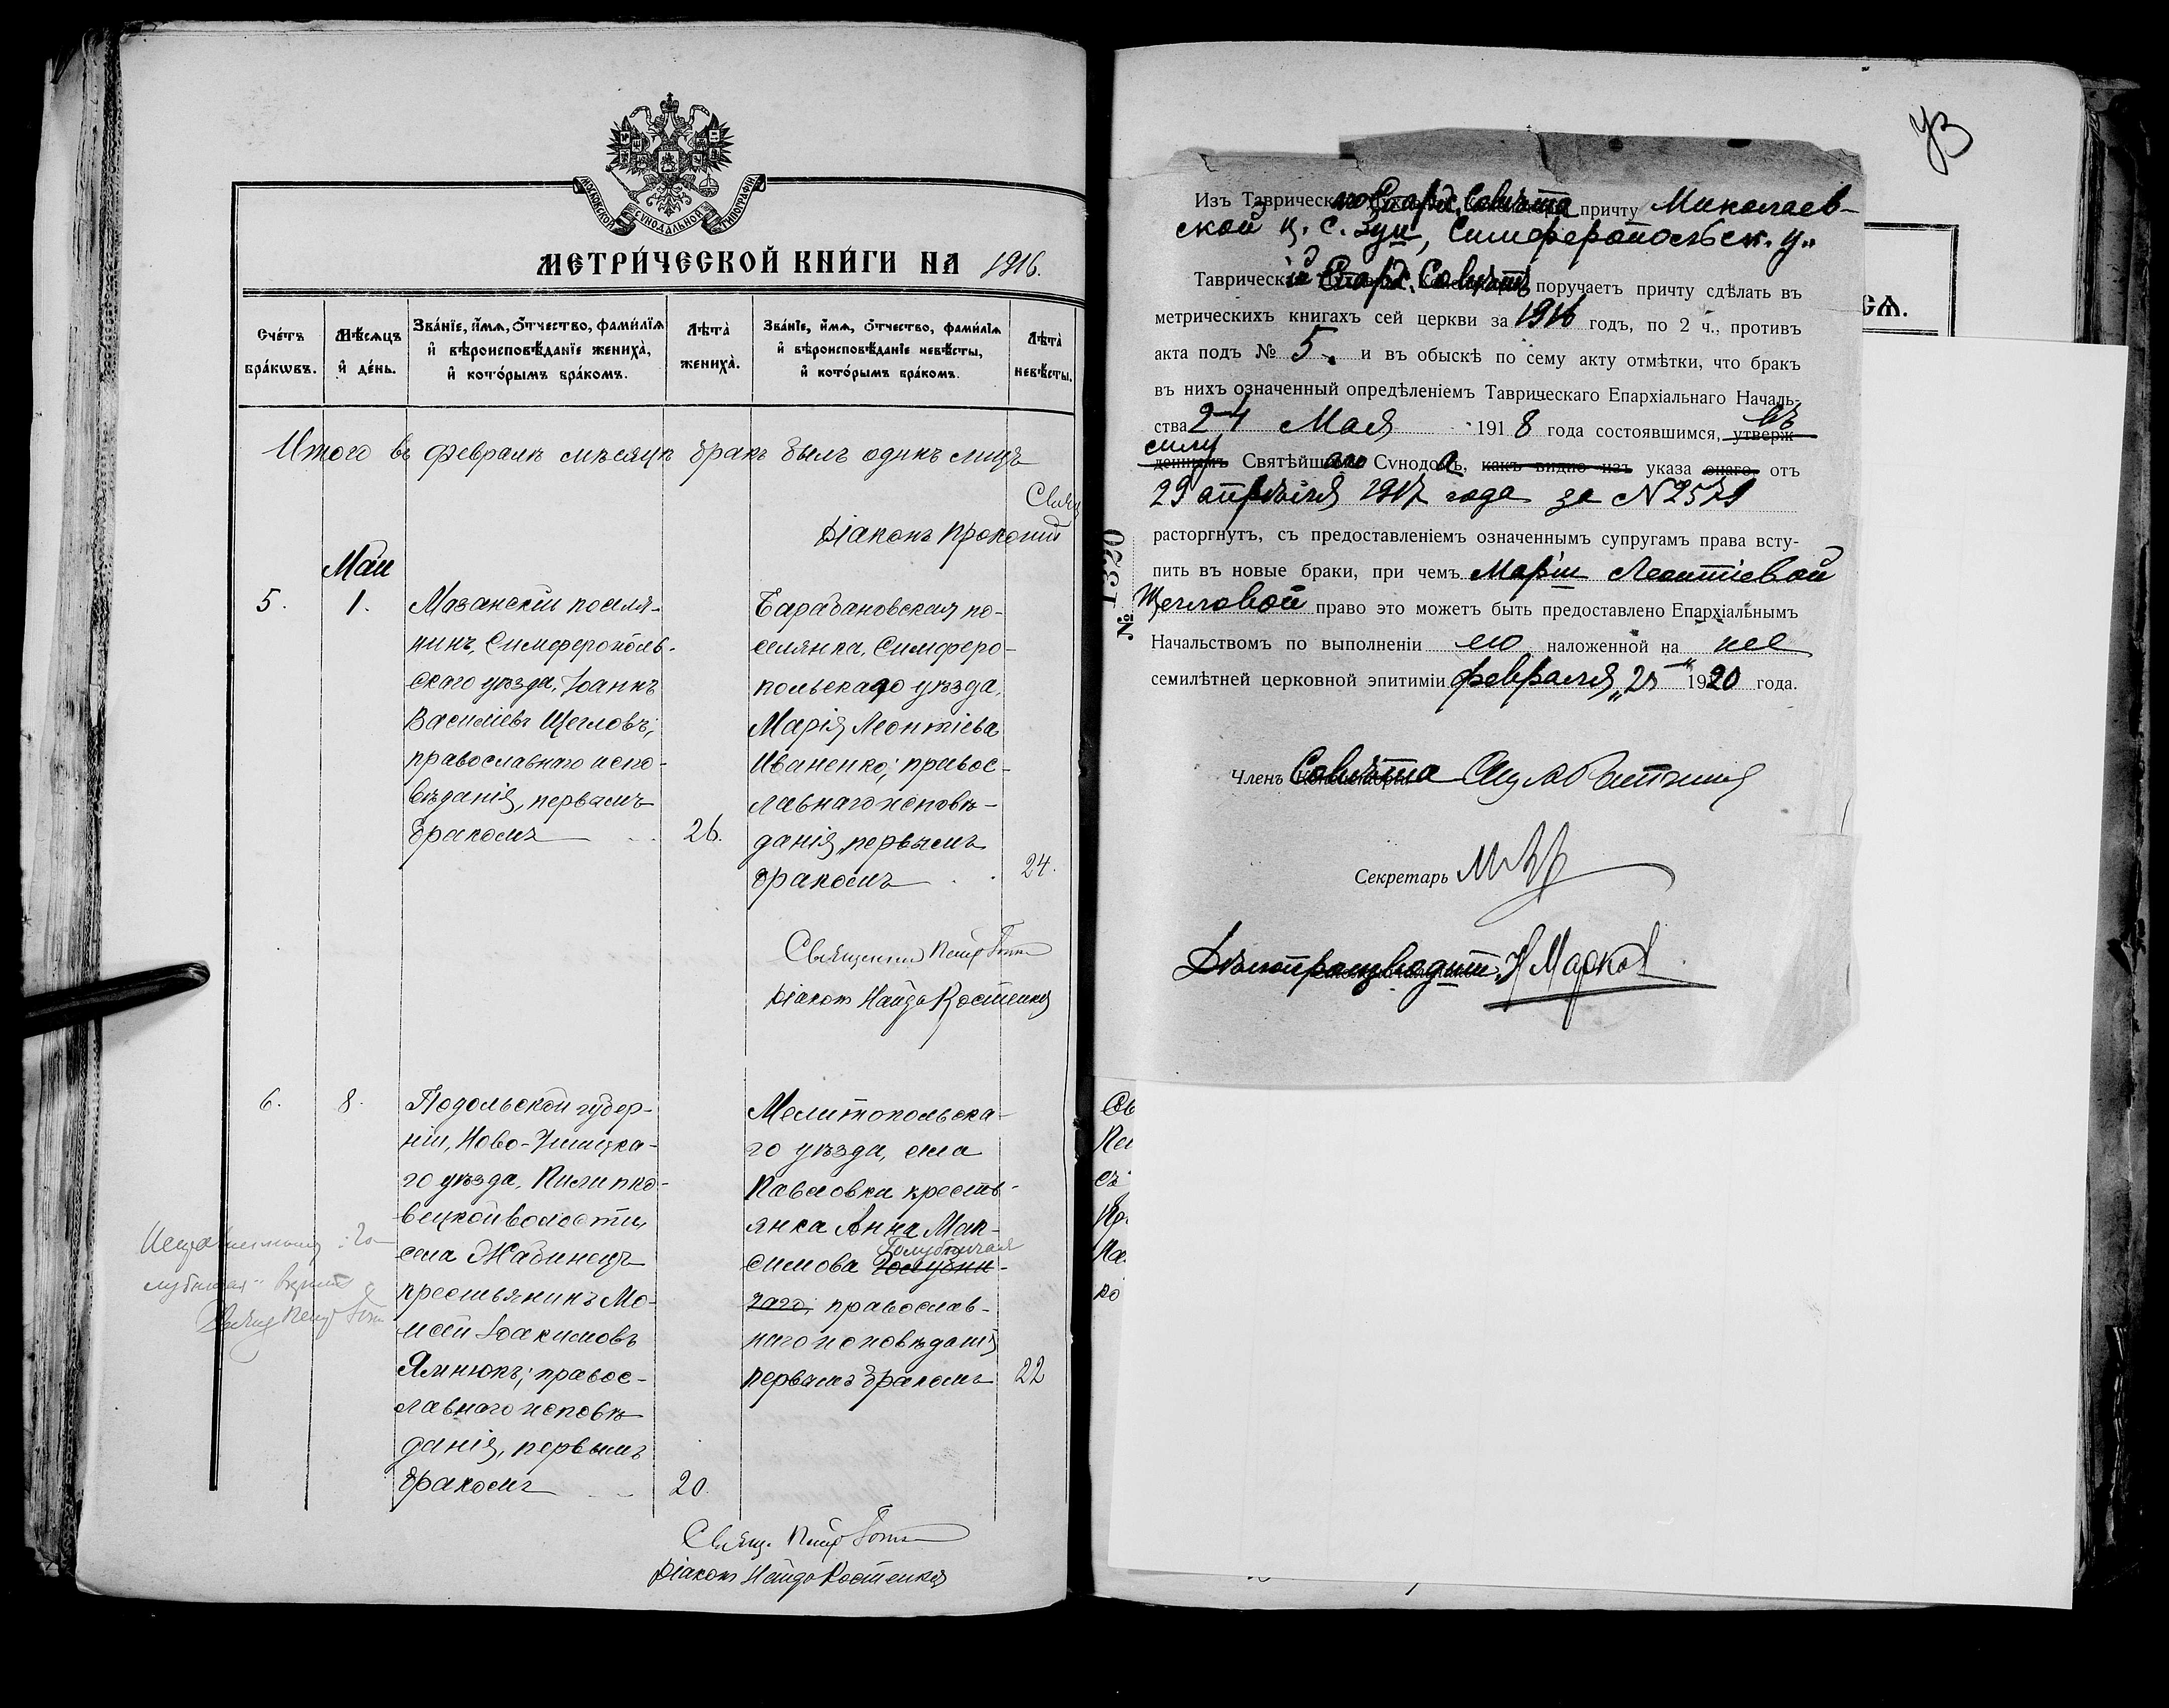 МОСКОВСКОЙ СѴНОДАЛЬНОЙ ТИПОГРАФІИ
МЕТРИ́ЧЕСКОЙ КНИ́ГИ НА 1916.
Сче́тъ бра́кѡвъ.
Мѣ́сѧцъ и҆ де́нь.
Зва́нїе, и҆́мѧ, ѻ҆́тчество, фами́лїѧ и҆ вѣроисповѣ́данїе жениха̀, и҆ кото́рымъ бра́комъ.
Лѣта̀ жениха̀.
Зва́нїе, и҆́мѧ, ѻ҆́тчество, фами́лїѧ и҆ вѣроисповѣ́данїе невѣ́сты, и҆ кото́рымъ бра́комъ.
Лѣта̀ невѣ́сты.
Итого въ февралѣ мѣсяцѣ бракъ былъ одинъ лишь
Діаконъ Прокопій
Май
5.
1.
Мазанскій поселя-
нинъ, Симферополь-
скаго уѣзда, Іоаннъ
Василіевъ Щегловъ;
православнаго испо-
вѣданія, первымъ
бракомъ
26.
Барабановская по-
селянка, Симферо-
польскаго уѣзда,
Марія Леонтіева
Иваненко; правос-
лавнаго исповѣ-
данія, первымъ
бракомъ
24.
Священникъ Петръ
Діаконъ Костенко
6.
8.
Подольской губер-
ніи, Ново-Ушицка-
го уѣзда,
вецкой волости,
села Жабинецъ
крестьянинъ Мо-
исей Іоакимовъ
Ямнюкъ; правос-
лавнаго исповѣ-
данія, первымъ
бракомъ
20.
Мелитопольска-
го уѣзда, села
Павловки кресть-
янка Анна Мак-
Голубничая
симова Голубни-
чаго; православ-
наго исповѣданія
первымъ бракомъ
22
Свящ. Петръ
Діаконъ Костенко
Изъ Таврическ Епарх. Совѣта причту Николаев-
ской ц. с. Зуи, Симферопольск. у.
Таврическій Епарх. Совѣтъ поручаетъ причту сдѣлать въ
метрическихъ книгахъ сей церкви за 1916 годъ, по 2 ч., противъ
акта подъ № 5. и въ обыскѣ по сему акту отмѣтки, что бракъ
въ нихъ означенный опредѣленіемъ Таврическаго Епархіальнаго Началь-
ства 24 Мая 1918 года состоявшимся, утверж- въ
силу
деннымъ Святѣйшаго Сѵнода, какъ видно изъ указа онаго, отъ
29 апрѣля 1917 года за № 2579
расторгнутъ, съ предоставленіемъ означеннымъ супругамъ права всту-
пить въ новые браки, при чемъ Маріи Леонтіевой
Щегловой право это можетъ быть предоставлено Епархіальнымъ
Начальствомъ по выполненіи ею наложенной на нее
семилѣтней церковной эпитиміи февраля „25" 1920 года.
№ 1320
Членъ Совѣта
Секретарь
Дѣлопроизводит. Н Марков